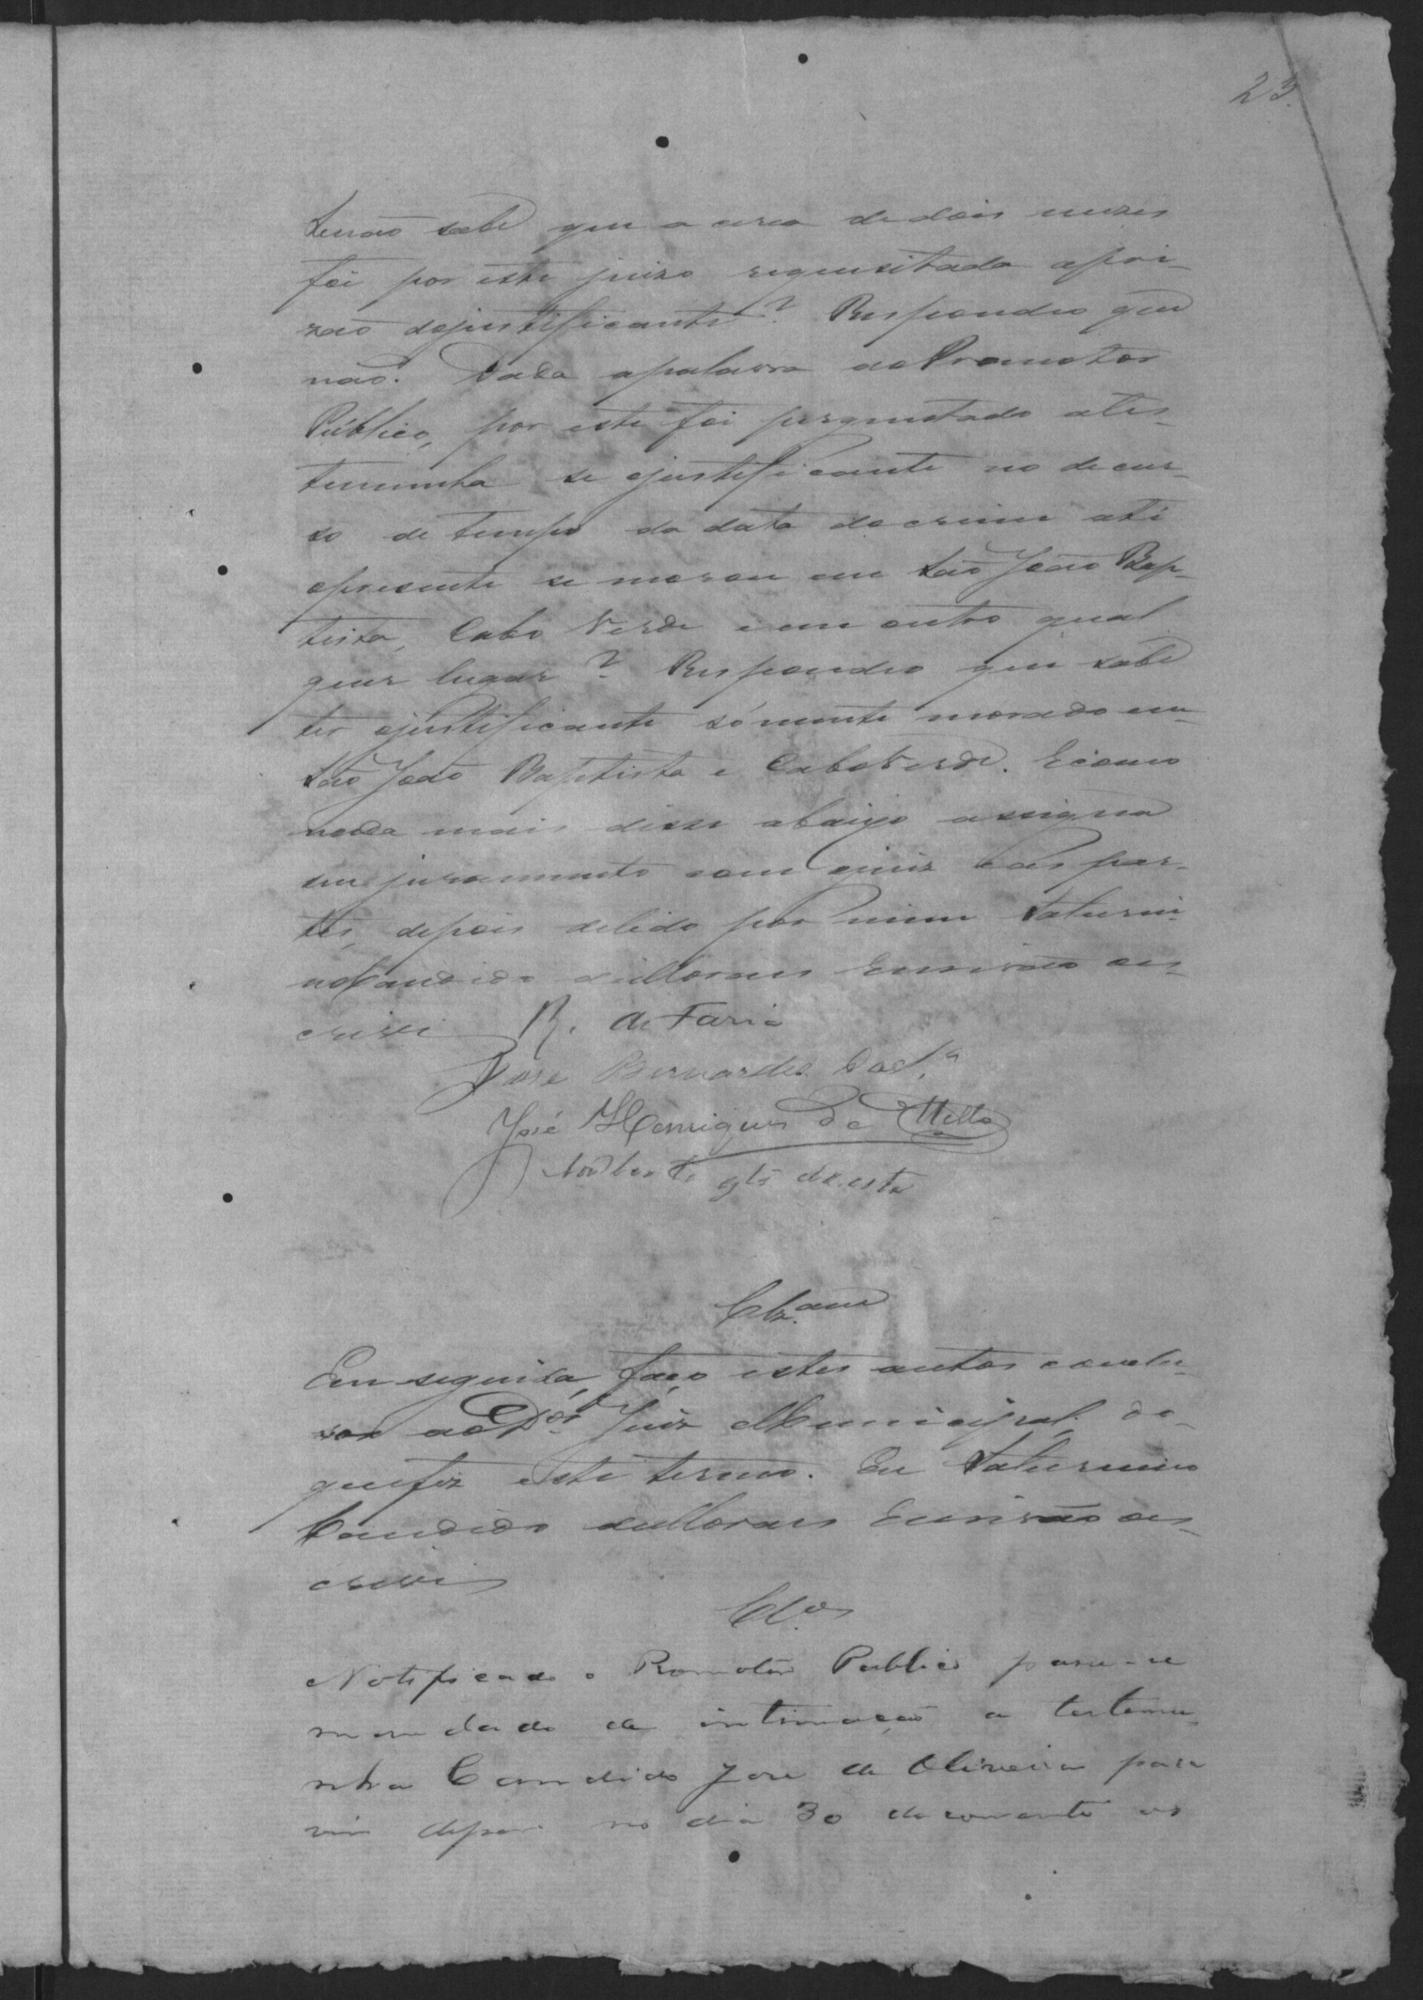 23.
se não sabe que a cerca de dois mezes
foi por este juizo requisitada apri-
zão dojustificante? Respondeo que
não. Dada apalavra aoPromotor
Publico, por este foi perguntado ates-
temunha se ojustificante no decur-
so de tempo da data do crime até
opresente se morou em São João Bap-
tista, Cabo Verde e em outro qual
quer lugar? Respondeo que sabe
ter ojustificante sómente morado em
São João Baptista e CaboVerde. Ecomo
nada mais disse abaixo assigna
seu juramento com ojuiz e as par-
tes, depois delido por mim Saturni-
noCandido deMoraes Escrivão es-
crevi
R. de Faria
José Bernardes
José Henriques de Mello
Em seguida, faço estes autos conclu-
sos aoDor. Juiz Municipal, do
quefiz este termo. Eu Saturnino
Candido deMoraes Escrivão es-
crevi
Clos
Notificado o Promotor Publico passe-se
mandado de intimação a testemu-
nha Candido José de Oliveira para
vir depor no dia 30 do corrente as